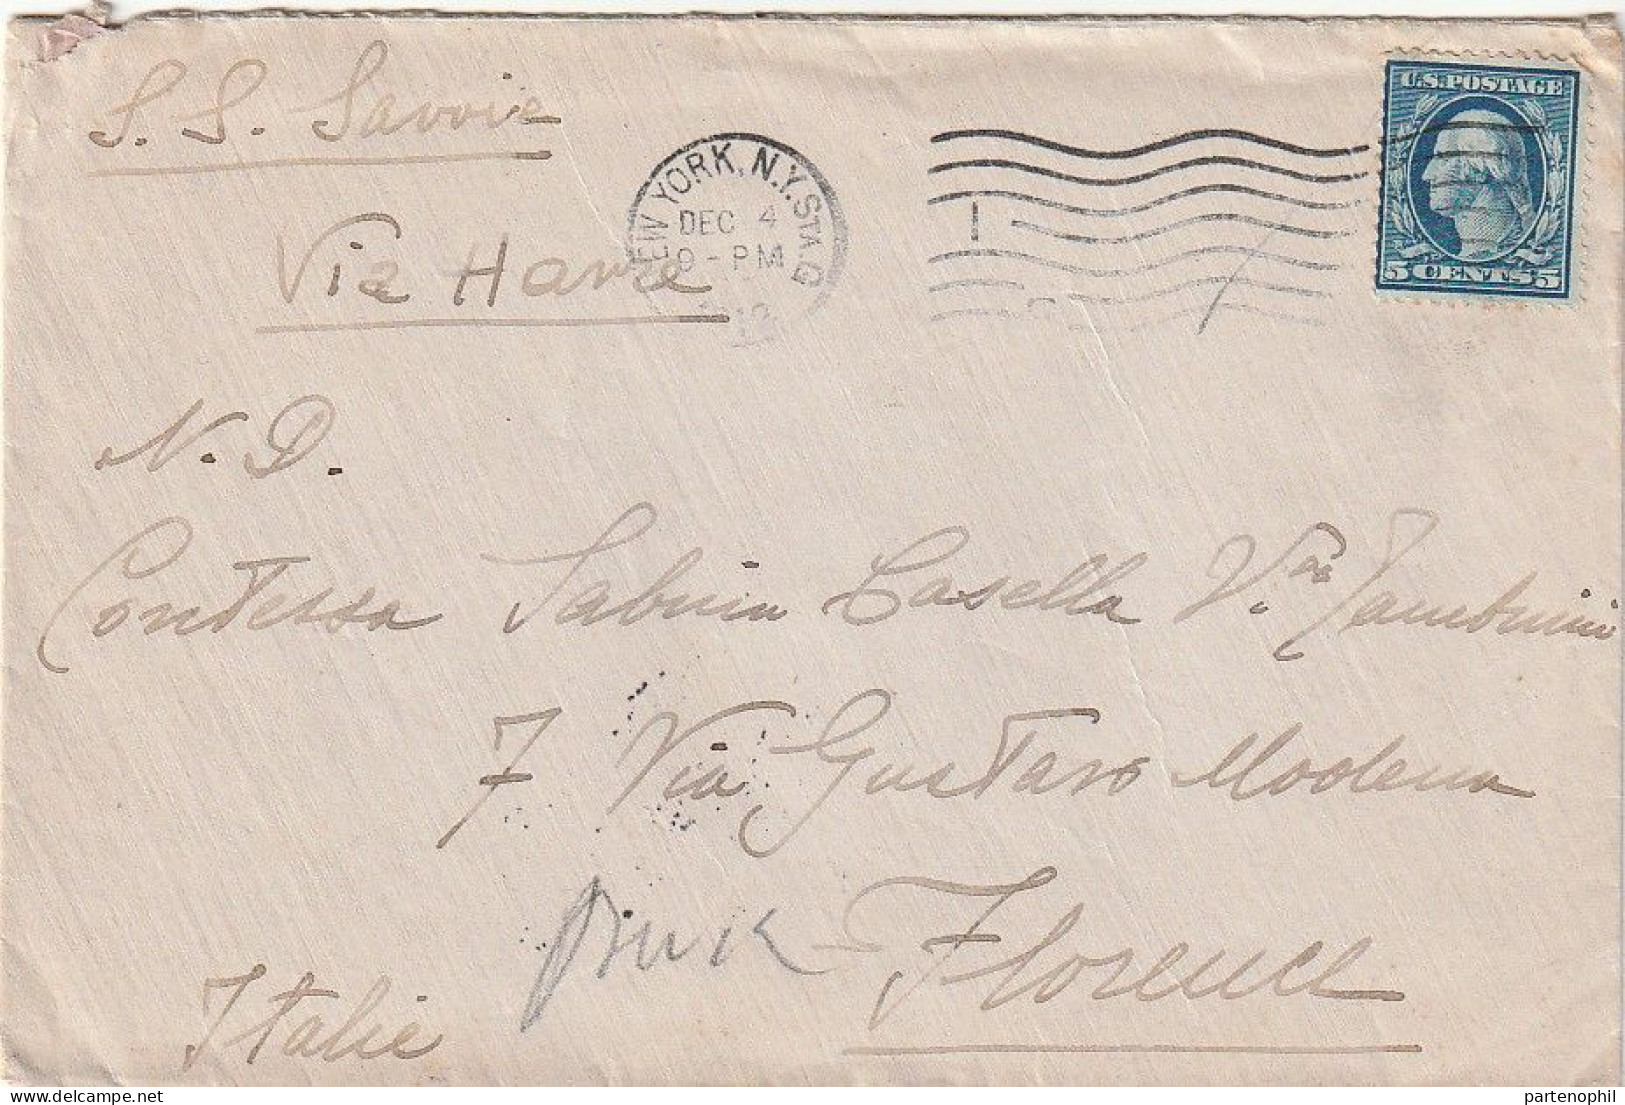 S. S. Savoie
Via Havre
NEW YORK, N.Y. STA. G
DEC 4
9 - PM
12
U.S. POSTAGE
5 CENTS 5
N. D.
Contessa Sabina Casella V.va Zambrini
7 Via Gustavo Modena
Florence
Italie
partenophil